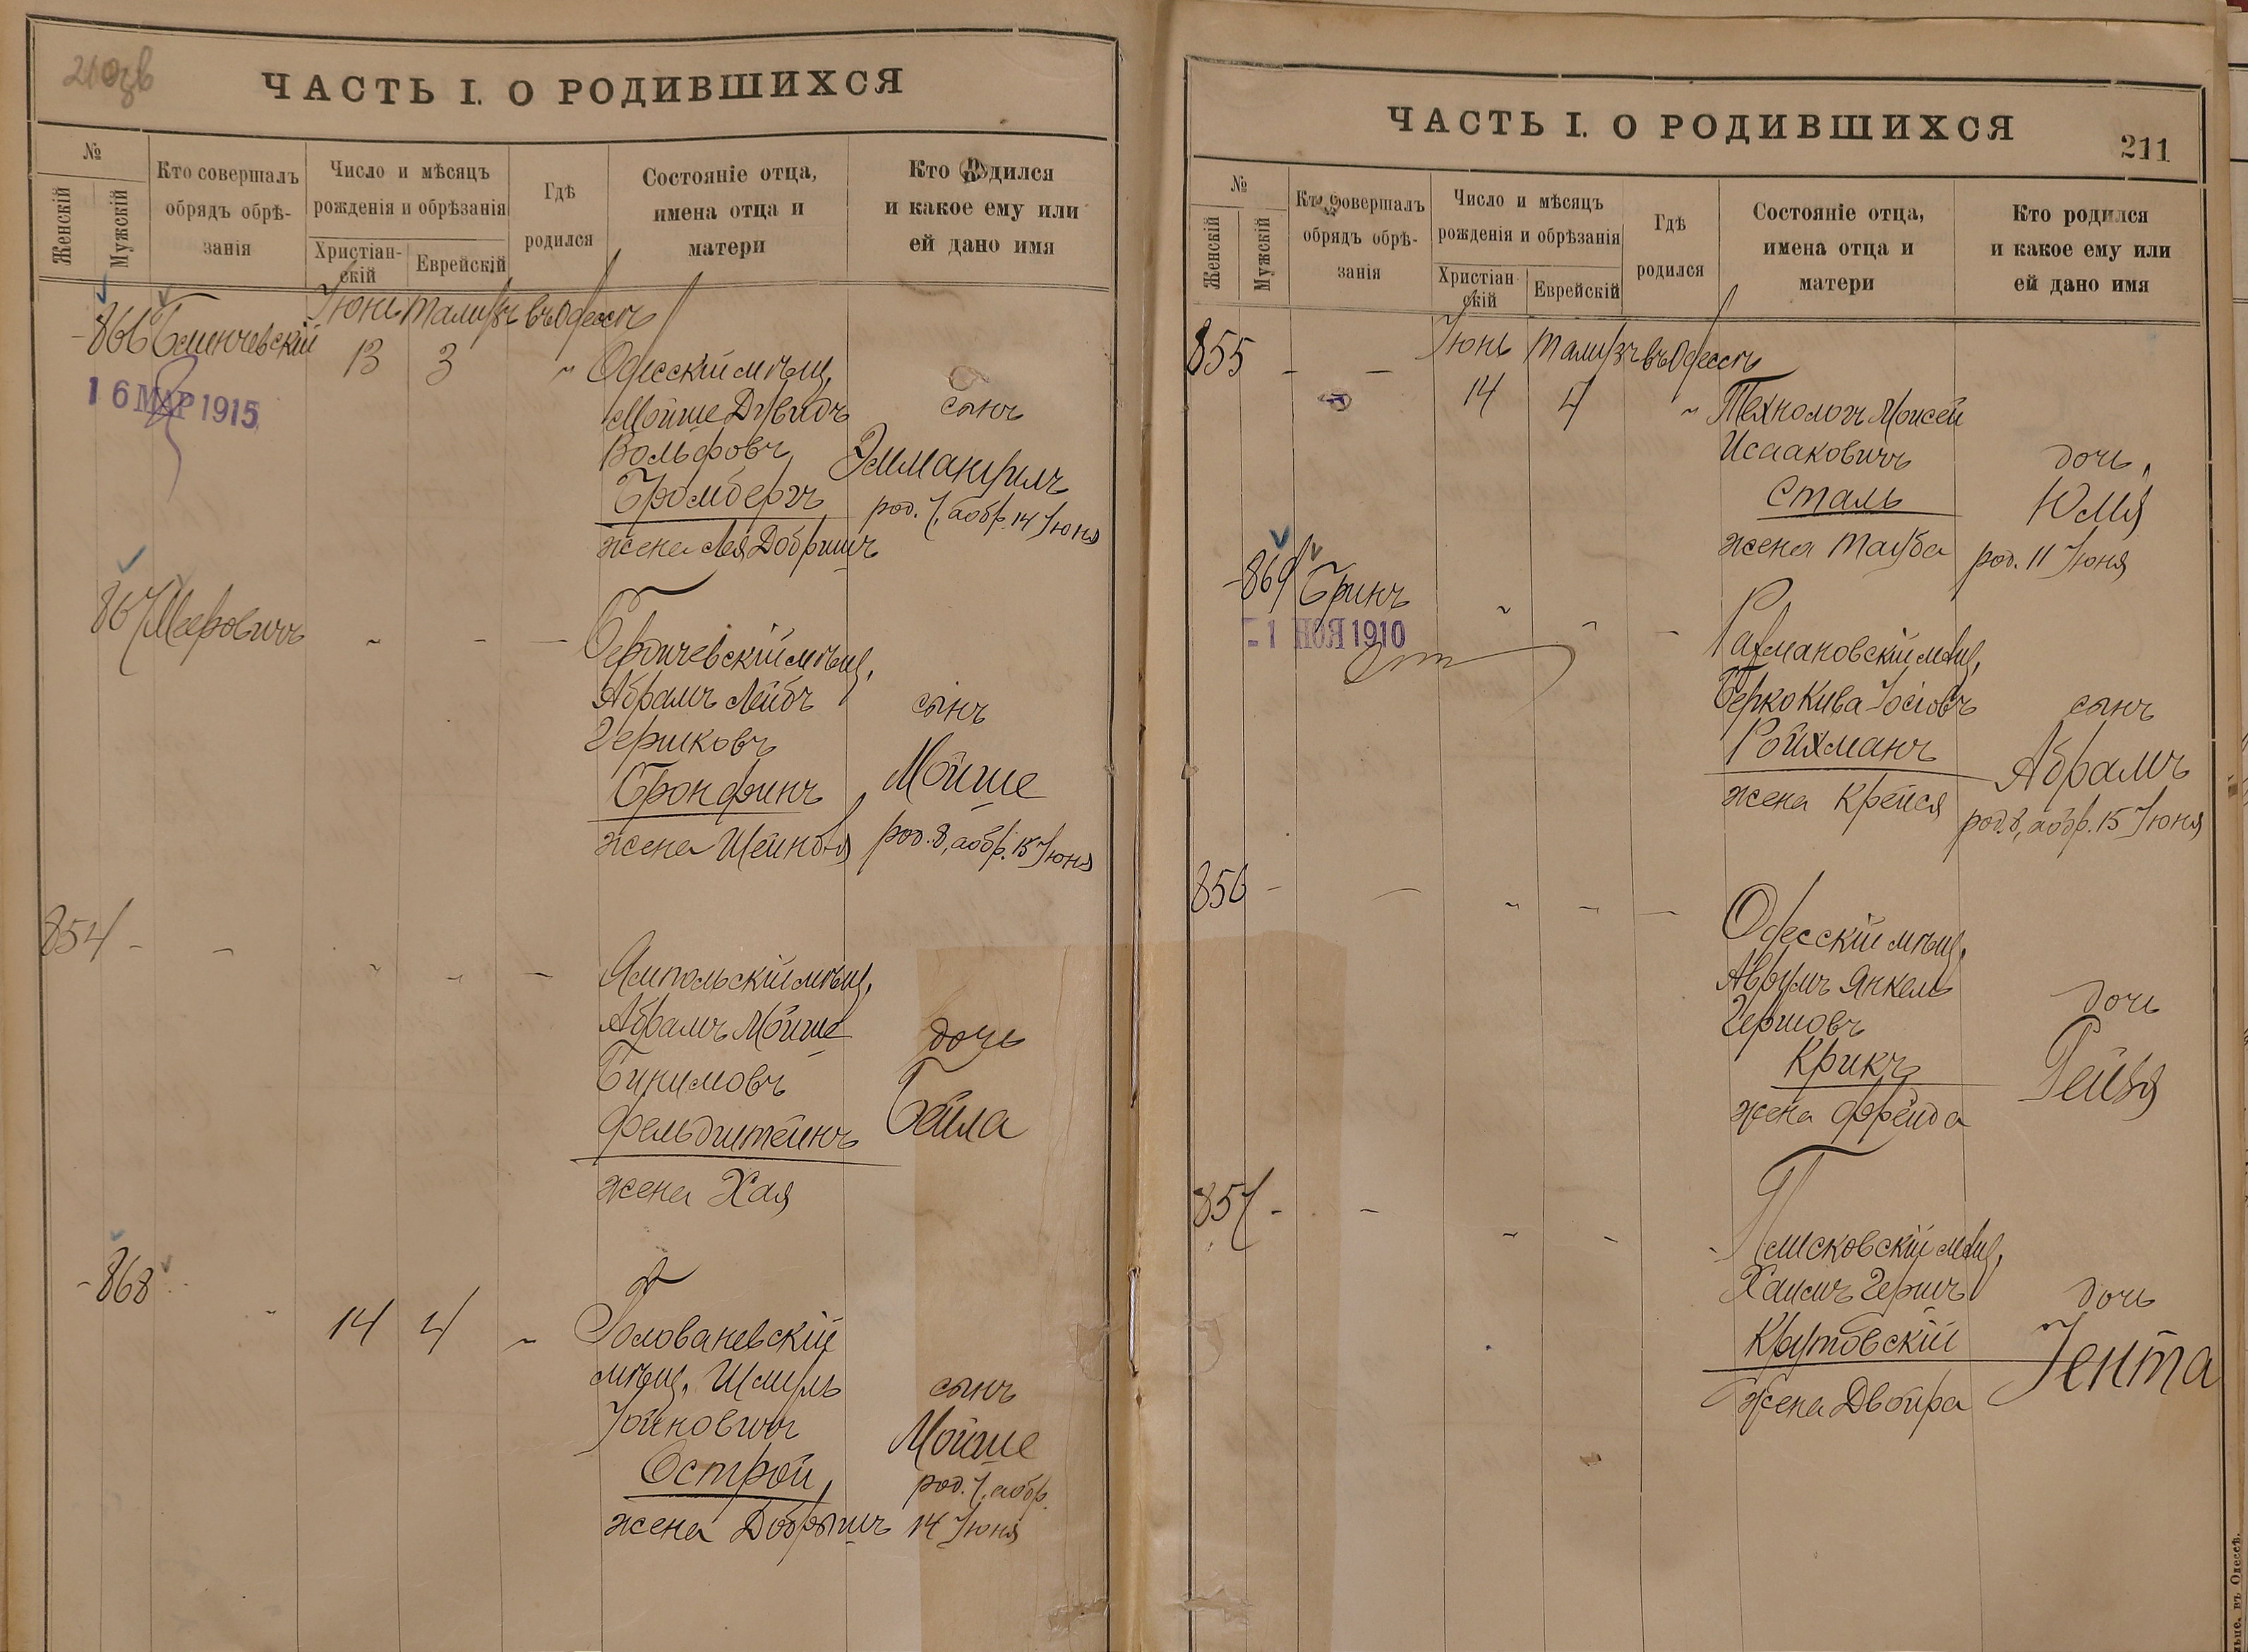 210 об
ЧАСТЬ I. О РОДИВШИХСЯ
№
Женскій
Мужскій
Кто совершалъ
обрядъ обрѣ-
занія
Число и мѣсяцъ
рожденія и обрѣзанія
Христіан-
скій
Еврейскій
Гдѣ
родился
Состояніе отца,
имена отца и
матери
Кто родился
и какое ему или
ей дано имя
Іюнь Тамузъ въ Одессѣ
866
13 3 "
16 МАР 1915
Одесскій мѣщ.
Мойше Дувидъ
Вольфовъ
Бромбергъ
жена Лея Добришъ
сынъ
Эммануилъ
род. 7, а обр. 14 Іюня
867 Мееровичъ " - -
Бердичевскій мѣщ.
Абрамъ Лейбъ
Гершковъ
Бронфинъ
жена Шейндля
сынъ
Мойше
род. 8, а обр. 15 Іюня
854 - - " - -
Ямпольскій мѣщ.
Абрамъ Мойше
Бинимовъ
Фельдштейнъ
жена Хая
дочь
Бейла
868 " 14 4 "
Голованевскій
мѣщ. Шмуль
Іойновичъ
Острой,
жена Добрышъ
сынъ
Мойше
род. 7, а обр.
14 Іюня
ЧАСТЬ I. О РОДИВШИХСЯ
211
№
Женскій
Мужскій
Кто совершалъ
обрядъ обрѣ-
занія
Число и мѣсяцъ
рожденія и обрѣзанія
Христіан-
скій
Еврейскій
Гдѣ
родился
Состояніе отца,
имена отца и
матери
Кто родился
и какое ему или
ей дано имя
Іюнь Тамузъ въ Одессѣ
855 - -
14 4 "
Технологъ Моисей
Исааковичъ
Сталь
жена Тауба
дочь,
Юлія
род. 11 Іюня
869 Бринъ " - -
- 1 НОЯ 1910
Рахмановскій мѣщ.
Берко Кива Іосіовъ
Ройхманъ
жена Крейся
сынъ
Абрамъ
род. 8, а обр. 15 Іюня
856 - - " - -
Одесскій мѣщ.
Аврумъ Янкель
Гершовъ
Крикъ
жена Фрейда
дочь
Рейзя
857 - - " - -
мѣщ.
Хаимъ Гершъ
Крутовскій
жена Двойра
дочь
Іента
въ Одессѣ.